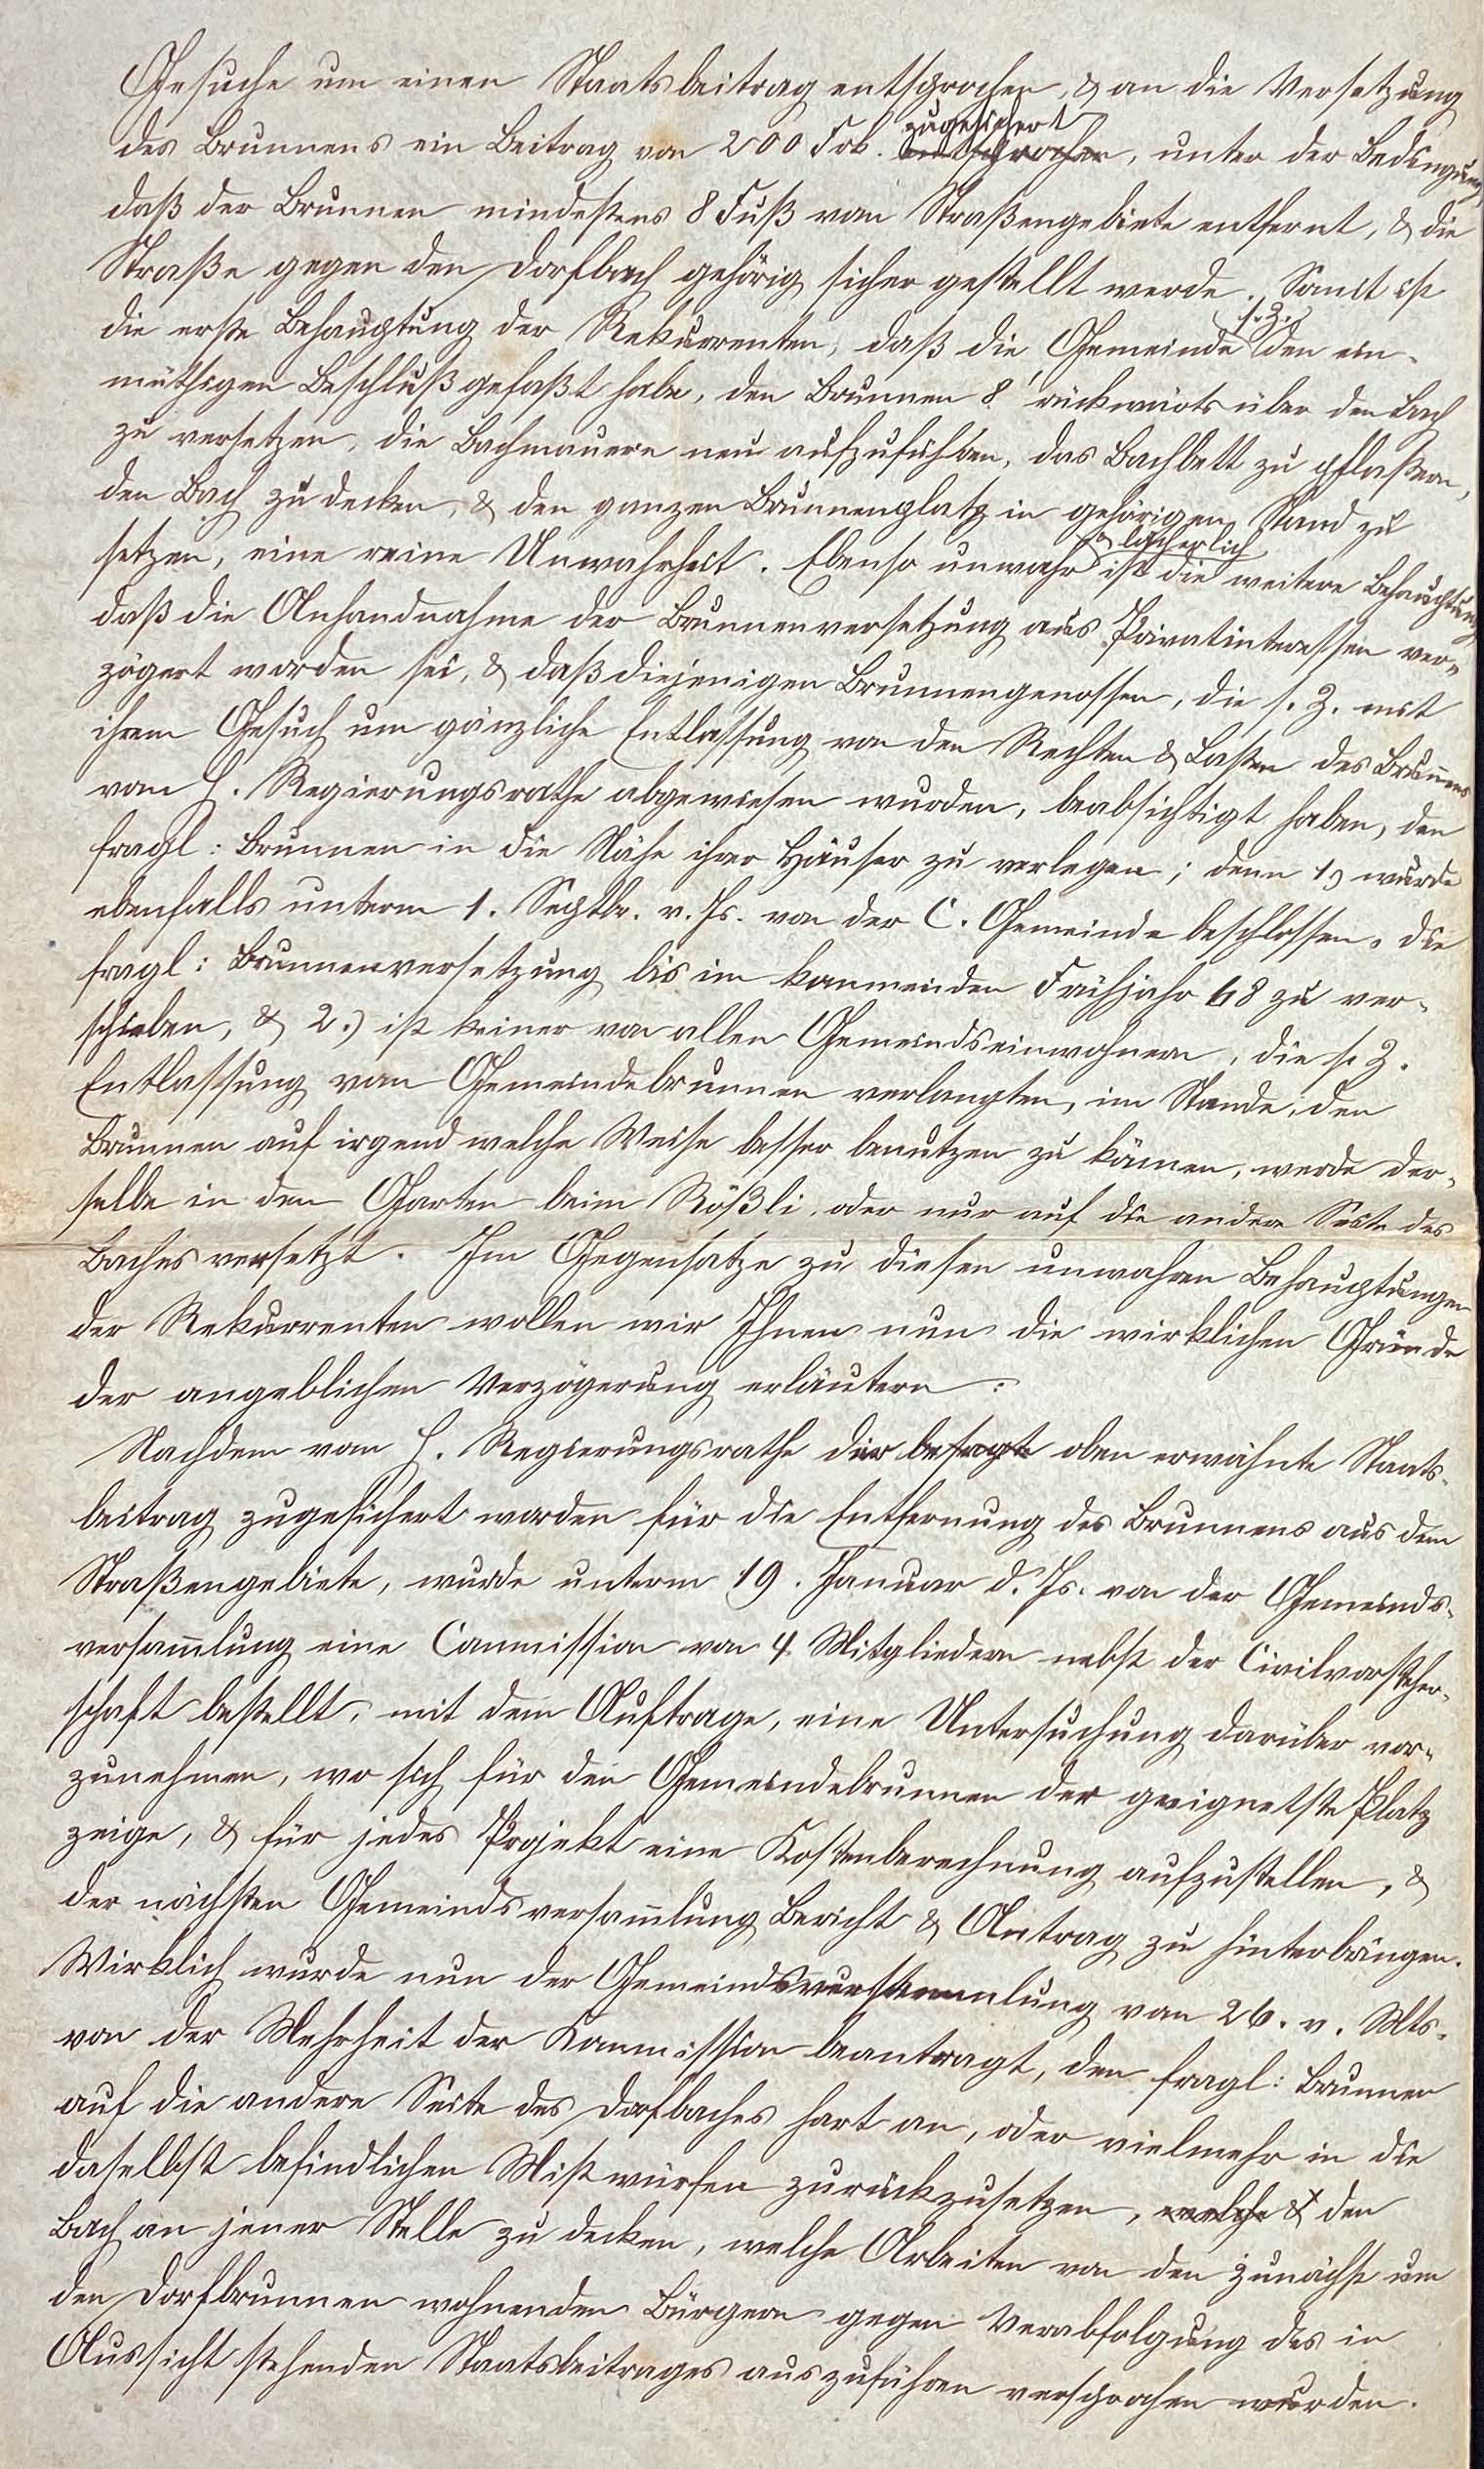 Gesuche um einen Staatsbeitrag entsprochen, & an die Versetzung
des Brunnens ein Beitrag von 200 Frk. zugesichert entsprochen, unter der Bedingung,
daß der Brunnen mindestens 8 Fuß vom Straßengebiete entfernt, & die
Straße gegen den Dorfbach gehörig sicher gestellt werde. Somit ist
die erste Behauptung der Rekurrenten, daß die Gemeinde s. Z. den ein-
müthigen Beschluß gefaßt habe, den Brunnen 8' rückwärts über den Bach
zu versetzen, die Bachmauern neu aufzuführen, das Bachbett zu pflastern,
den Bach zu decken, & den ganzen Brunnenplatz in gehörigen Stand zu
setzen, eine reine Unwahrheit. Ebenso unwahr & lächerlich ist die weitere Behauptung,
daß die Anhandnahme der Brunnenversetzung aus Privatinteressen ver-
zögert worden sei, & daß diejenigen Brunnengenossen, die s. Z. mit
ihrem Gesuch um gänzliche Entlassung von den Rechten & Lasten des Brunnens
vom h. Regierungsrathe abgewiesen wurden, beabsichtigt haben, den
fragl: Brunnen in die Nähe ihrer Häuser zu verlegen; denn 1.) wurde
ebenfalls unterm 1. Septbr. v. Js. von der C. Gemeinde beschlossen, die
fragl: Brunnenversetzung bis im kommenden Frühjahr 68 zu ver-
schieben, & 2.) ist keiner von allen Gemeindseinwohnern, die s. Z.
Entlassung vom Gemeindebrunnen verlangten, im Stande, den
Brunnen auf irgend welche Weise besser benutzen zu können, werde der-
selbe in den Garten beim Rößli, oder nur auf die andere Seite des
Baches versetzt. Im Gegensatze zu diesen unwahren Behauptungen
der Rekurrenten wollen wir Ihnen nun die wirklichen Gründe
der angeblichen Verzögerung erläutern:
Nachdem vom h. Regierungsrathe der besagte oben erwähnte Staats-
beitrag zugesichert worden für die Entfernung des Brunnens aus dem
Straßengebiete, wurde unterm 19. Januar d. Js. von der Gemeinds-
versam̄lung eine Commission von 4 Mitgliedern nebst der Civilvorsteher-
schaft bestellt, mit dem Auftrage, eine Untersuchung darüber vor-
zunehmen, wo sich für den Gemeindebrunnen der geeignetste Platz
zeige, & für jedes Projekt eine Kostenberechnung aufzustellen, &
der nächsten Gemeindsversam̄lung Bericht & Antrag zu hinterbringen.
Wirklich wurde nun der Gemeindsversammlung vom 26. v. Mts.
von der Mehrheit der Kommission beantragt, den fragl: Brunnen
auf die andere Seite des Dorfbaches hart an, oder vielmehr in die
daselbst befindlichen Mistwürfen zurückzusetzen, welche & den
Bach an jener Stelle zu decken, welche Arbeiten von den zunächst um
den Dorfbrunnen wohnenden Bürgern gegen Verabfolgung des in
Aussicht stehenden Staatsbeitrages auszuführen versprochen wurden.